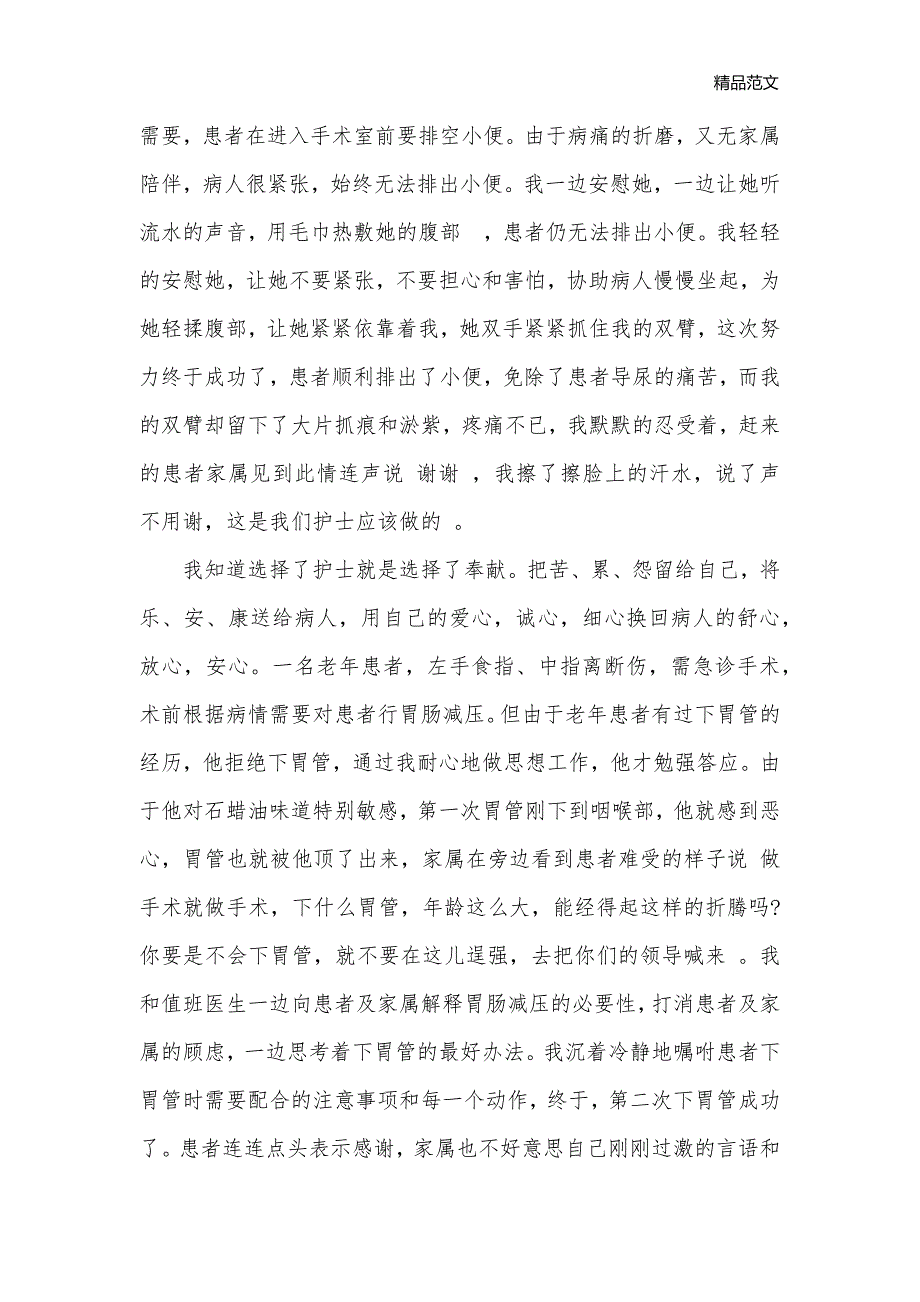 精品范文
需要，患者在进入手术室前要排空小便。由于病痛的折磨，又无家属
陪伴，病人很紧张，始终无法排出小便。我一边安慰她，一边让她听
流水的声音，用毛巾热敷她的腹部 ，患者仍无法排出小便。我轻轻
的安慰她，让她不要紧张，不要担心和害怕，协助病人慢慢坐起，为
她轻揉腹部，让她紧紧依靠着我，她双手紧紧抓住我的双臂，这次努
力终于成功了，患者顺利排出了小便，免除了患者导尿的痛苦，而我
的双臂却留下了大片抓痕和淤紫，疼痛不已，我默默的忍受着，赶来
的患者家属见到此情连声说 谢谢 ，我擦了擦脸上的汗水，说了声
不用谢，这是我们护士应该做的 。
我知道选择了护士就是选择了奉献。把苦、累、怨留给自己，将
乐、安、康送给病人，用自己的爱心，诚心，细心换回病人的舒心，
放心，安心。一名老年患者，左手食指、中指离断伤，需急诊手术，
术前根据病情需要对患者行胃肠减压。但由于老年患者有过下胃管的
经历，他拒绝下胃管，通过我耐心地做思想工作，他才勉强答应。由
于他对石蜡油味道特别敏感，第一次胃管刚下到咽喉部，他就感到恶
心，胃管也就被他顶了出来，家属在旁边看到患者难受的样子说 做
手术就做手术，下什么胃管，年龄这么大，能经得起这样的折腾吗?
你要是不会下胃管，就不要在这儿逞强，去把你们的领导喊来 。我
和值班医生一边向患者及家属解释胃肠减压的必要性，打消患者及家
属的顾虑，一边思考着下胃管的最好办法。我沉着冷静地嘱咐患者下
胃管时需要配合的注意事项和每一个动作，终于，第二次下胃管成功
了。患者连连点头表示感谢，家属也不好意思自己刚刚过激的言语和